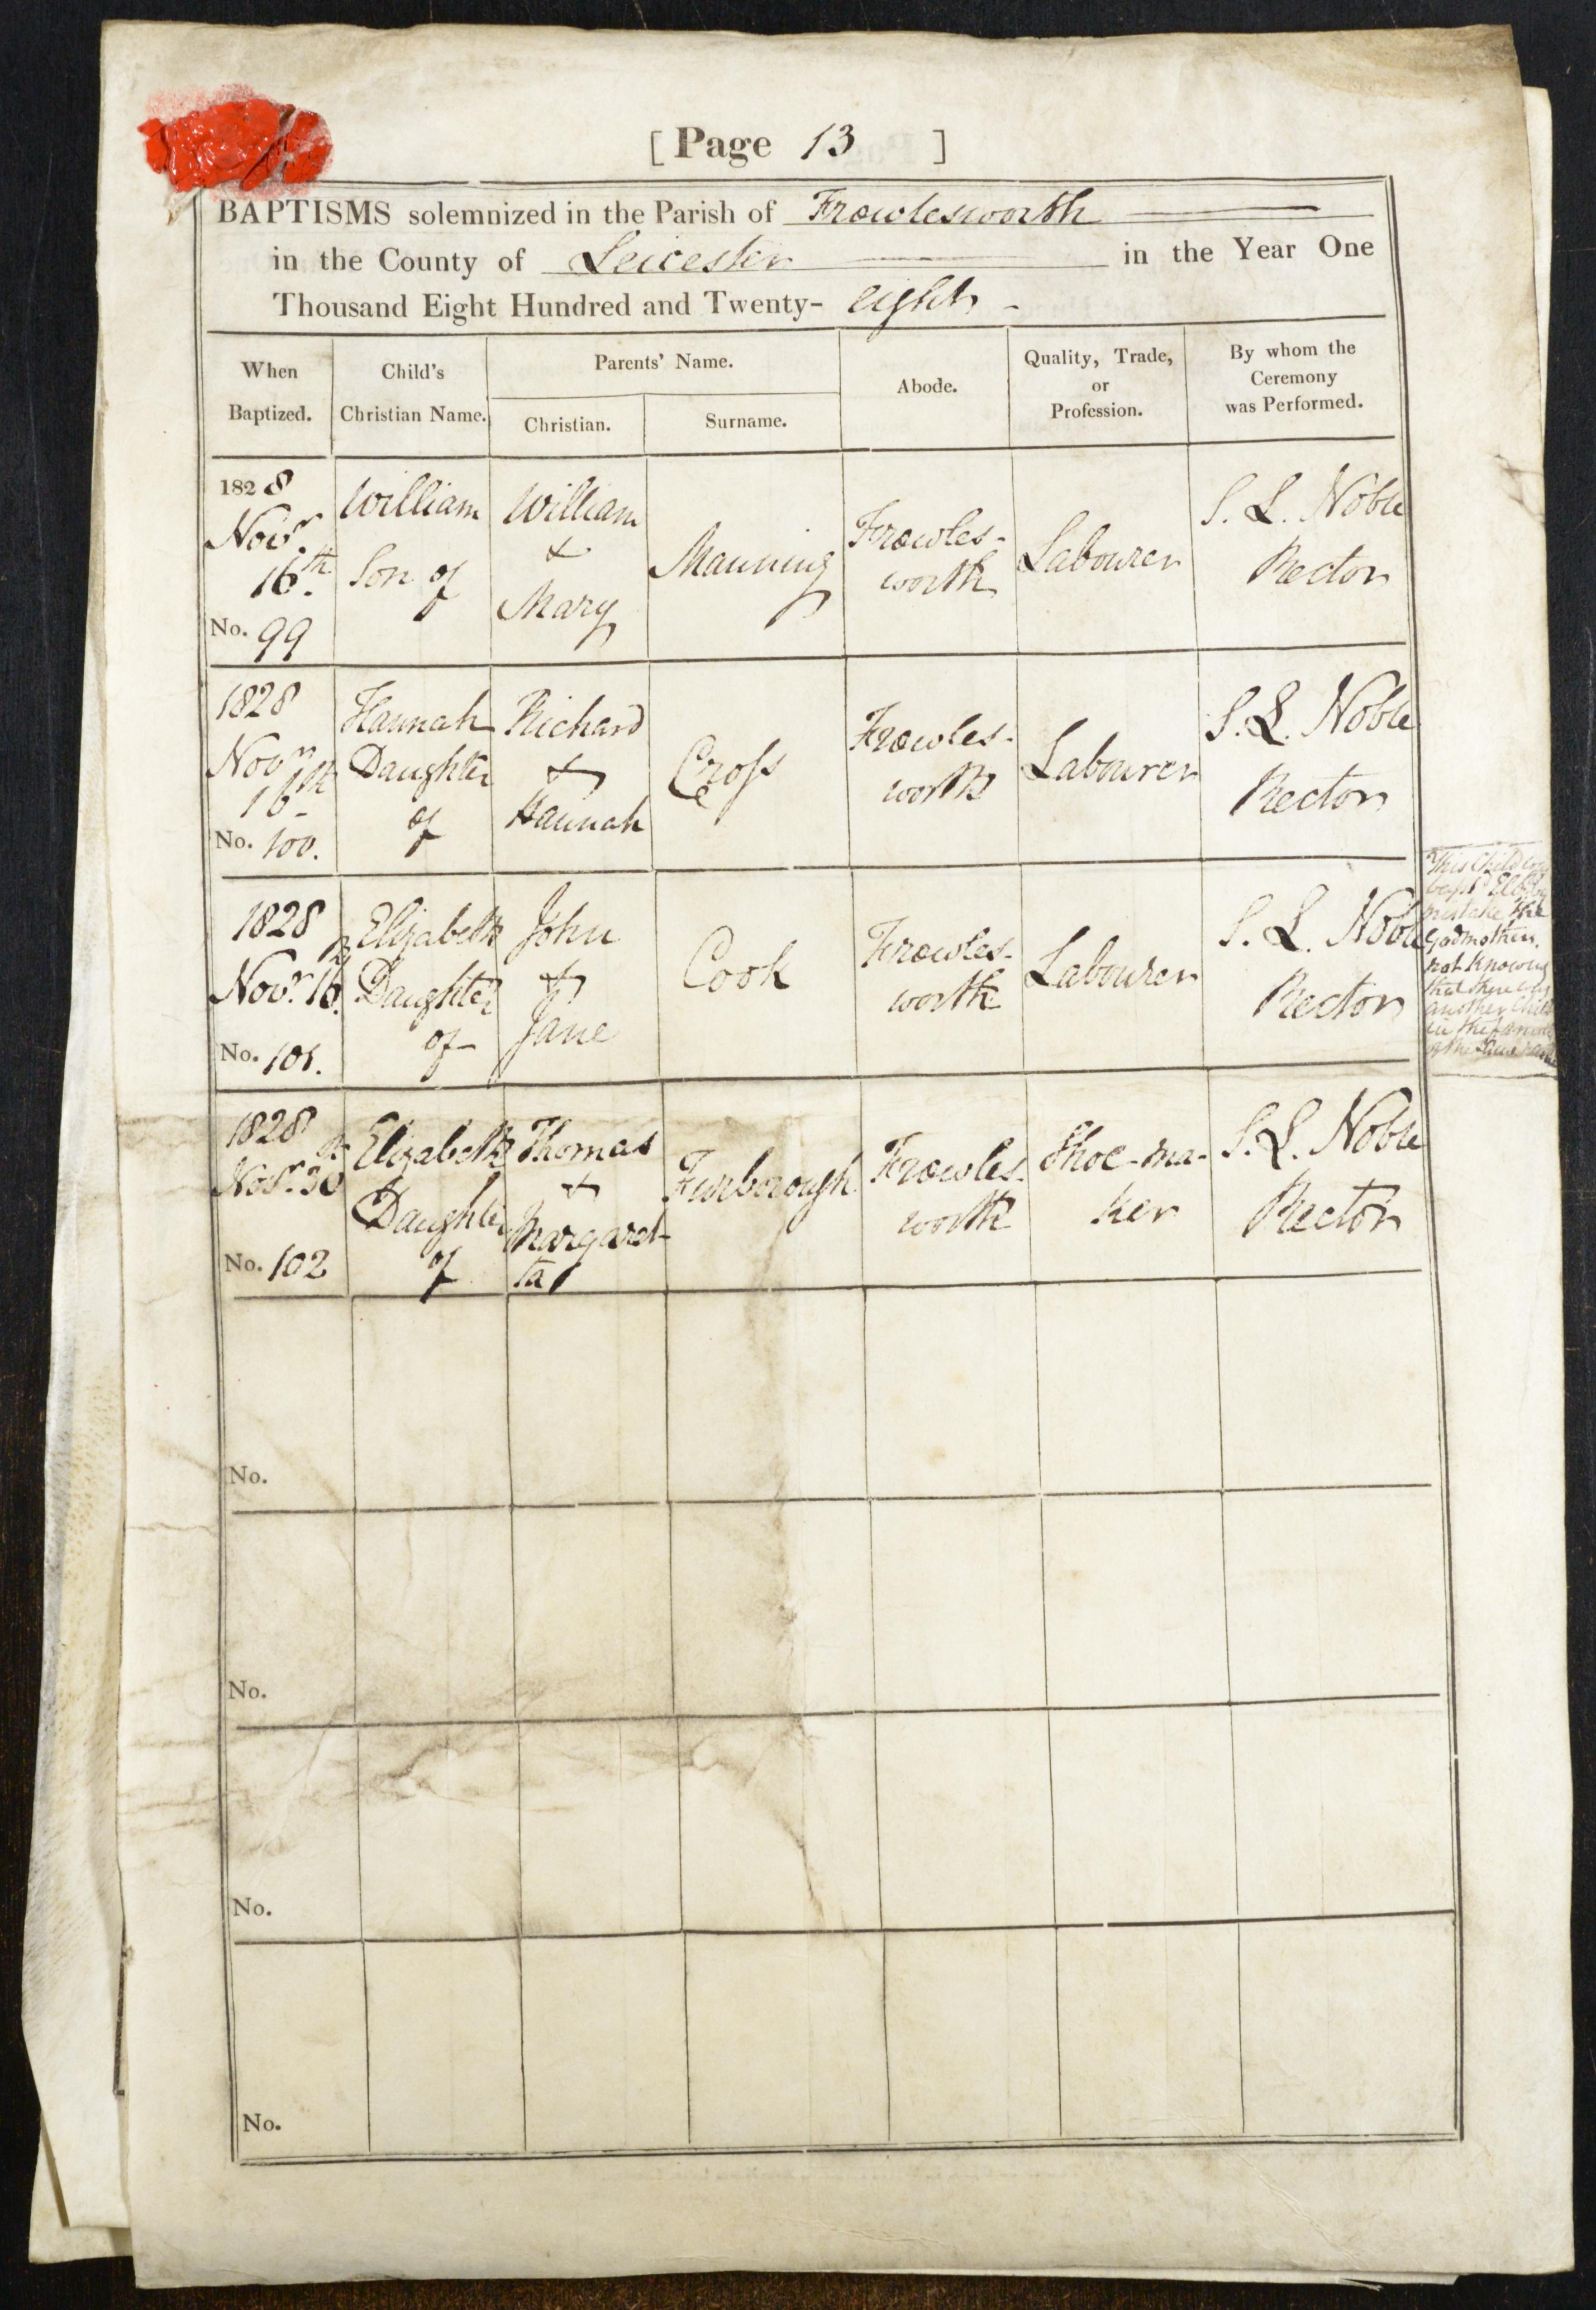 [ Page 13 ]
BAPTISMS solemnized in the Parish of Frowlesworth
in the County of Leicester in the Year One
Thousand Eight Hundred and Twenty- eight -
When
Baptized.
Child's
Christian Name.
Parents' Name.
Christian.
Surname.
Abode.
Quality, Trade,
or
Profession.
By whom the
Ceremony
was Performed.
1828
Novr.
16th.
No. 99
William
Son of
William
&
Mary
Manning
Frowles-
worth
Labourer
S. L. Noble
Rector
1828
Novr
16th
No. 100.
Hannah
Daughter
of
Richard
&
Hannah
Croſs
Frowles-
worth
Labourer
S. L. Noble
Rector
1828
Novr. 16th
No. 101.
Elizabeth
Daughter
of
John
&
Jane
Cook
Frowles-
worth
Labourer
S. L. Noble
Rector
This Child was
bapd Eliz. by
mistake the
Godmother
not knowing
that there was
another Child
in the
of the same name
1828
Novr. 30th
No. 102
Elizabeth
Daughter
of
Thomas
&
Margaret-
ta
Furborough
Frowles-
worth
Shoe-ma-
ker
S. L. Noble
Rector
No.
No.
No.
No.